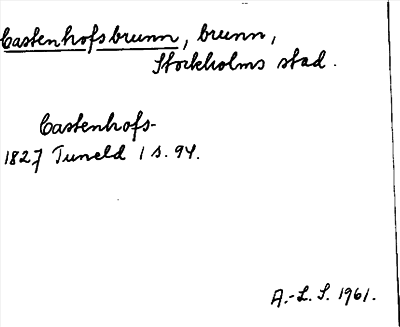 Castenhofsbrunn, brunn,
Stockholms stad.
Castenhofs-
1827 Tuneld I s. 94.
A.-L. S. 1961.